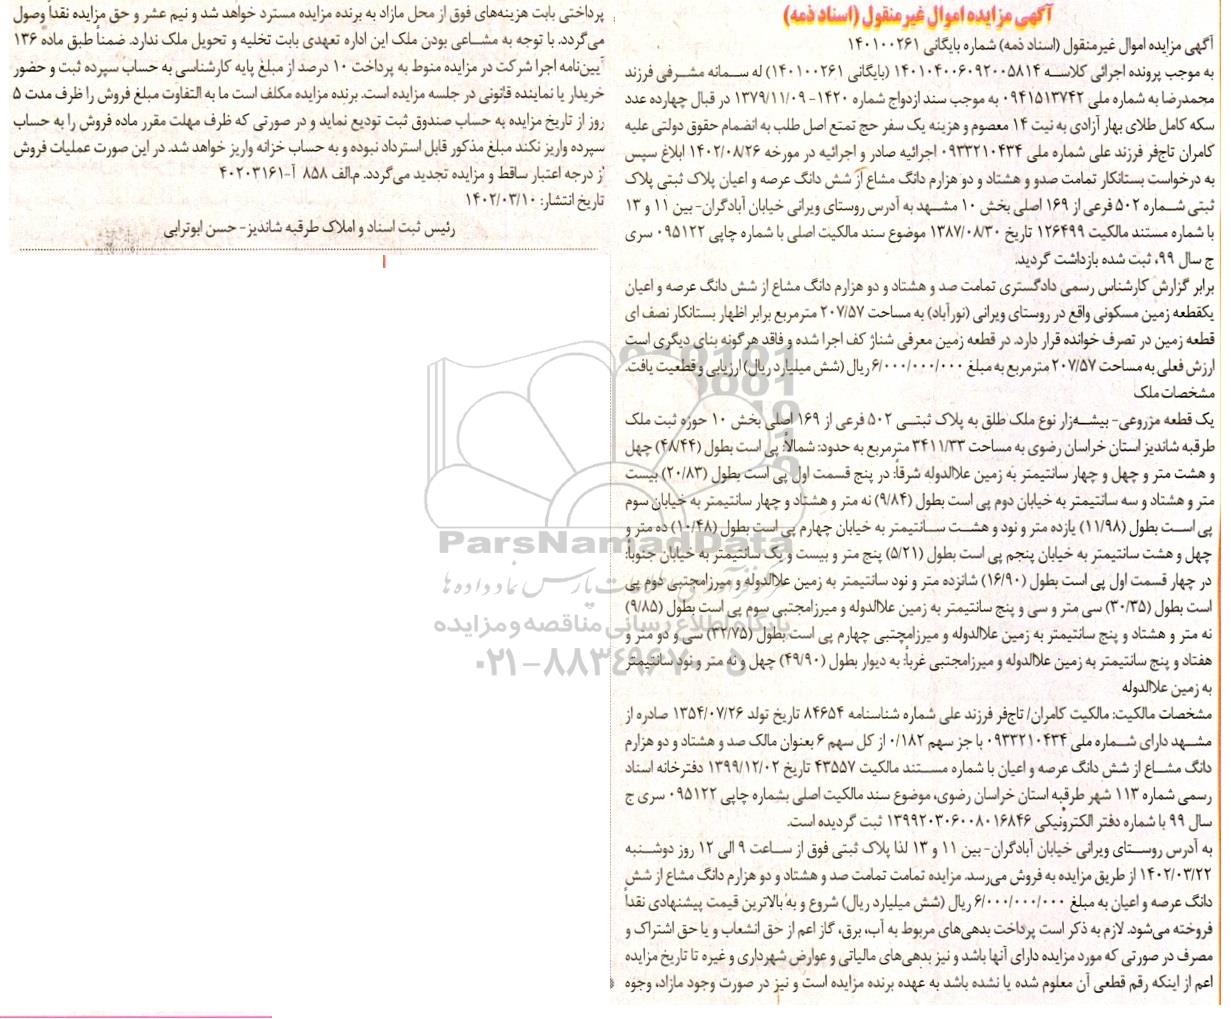 آگهی مزایده اموال غیر منقول (اسناد ذمه)
آگهی مزایده اموال غیرمنقول (اسناد ذمه) شماره بایگانی ۱۴۰۱۰۰۲۶۱
به موجب پرونده اجرائی کلاسه ۱۴۰۱۰۴۰۰۶۰۹۲۰۰۵۸۱۴ (بایگانی ۱۴۰۱۰۰۲۶۱) له سمانه مشرفی فرزند
محمدرضا به شماره ملی ۰۹۴۱۵۱۳۷۴۲ به موجب سند ازدواج شماره ۱۴۲۰- ۱۳۷۹/۱۱/۰۹ در قبال چهارده عدد
سکه کامل طلای بهار آزادی به نیت ۱۴ معصوم و هزینه یک سفر حج تمتع اصل طلب به انضمام حقوق دولتی علیه
کامران تاج‌فر فرزند علی شماره ملی ۰۹۳۳۲۱۰۴۳۴ اجرائیه صادر و اجرائیه در مورخه ۱۴۰۲/۰۸/۲۶ ابلاغ سپس
به درخواست بستانکار تمامت صدو و هشتاد و دو هزارم دانگ مشاع از شش دانگ عرصه و اعیان پلاک ثبتی پلاک
ثبتی شماره ۵۰۲ فرعی از ۱۶۹ اصلی بخش ۱۰ مشهد به آدرس روستای ویرانی خیابان آبادگران- بین ۱۱ و ۱۳
با شماره مستند مالکیت ۱۲۶۴۹۹ تاریخ ۱۳۸۷/۰۸/۳۰ موضوع سند مالکیت اصلی با شماره چاپی ۰۹۵۱۲۲ سری
ج سال ۹۹، ثبت شده بازداشت گردید.
برابر گزارش کارشناس رسمی دادگستری تمامت صد و هشتاد و دو هزارم دانگ مشاع از شش دانگ عرصه و اعیان
یکقطعه زمین مسکونی واقع در روستای ویرانی (نورآباد) به مساحت ۲۰۷/۵۷ مترمربع برابر اظهار بستانکار نصف ای
قطعه زمین در تصرف خوانده قرار دارد. در قطعه زمین معرفی شناژ کف اجرا شده و فاقد هرگونه بنای دیگری است
ارزش فعلی به مساحت ۲۰۷/۵۷ مترمربع به مبلغ ۶/۰۰۰/۰۰۰/۰۰۰ ریال (شش میلیارد ریال) ارزیابی و قطعیت یافت.
مشخصات ملک
یک قطعه مزروعی- بیشه‌زار نوع ملک طلق به پلاک ثبتی ۵۰۲ فرعی از ۱۶۹ اصلی بخش ۱۰ حوزه ثبت ملک
طرقبه شاندیز استان خراسان رضوی به مساحت ۳۴۱۱/۳۳ مترمربع به حدود: شمالاً: پی است بطول (۴۸/۴۴) چهل
و هشت متر و چهل و چهار سانتیمتر به زمین علاالدوله شرقاً: در پنج قسمت اول پی است بطول (۲۰/۸۳) بیست
متر و هشتاد و سه سانتیمتر به خیابان دوم پی است بطول (۹/۸۴) نه متر و هشتاد و چهار سانتیمتر به خیابان سوم
پی است بطول (۱۱/۹۸) یازده متر و نود و هشت سانتیمتر به خیابان چهارم پی است بطول (۱۰/۴۸) ده متر و
چهل و هشت سانتیمتر به خیابان پنجم پی است بطول (۵/۲۱) پنج متر و بیست و یک سانتیمتر به خیابان جنوباً:
در چهار قسمت اول پی است بطول (۱۶/۹۰) شانزده متر و نود سانتیمتر به زمین علاالدوله و میرزامجتبی دوم پی
است بطول (۳۰/۳۵) سی متر و سی و پنج سانتیمتر به زمین علاالدوله و میرزامجتبی سوم پی است بطول (۹/۸۵)
نه متر و هشتاد و پنج سانتیمتر به زمین علاالدوله و میرزامجتبی چهارم پی است بطول (۳۲/۷۵) سی و دو متر و
هفتاد و پنج سانتیمتر به زمین علاالدوله و میرزامجتبی غرباً: به دیوار بطول (۴۹/۹۰) چهل و نه متر و نود سانتیمتر
به زمین علاالدوله
مشخصات مالکیت: مالکیت کامران/ تاج‌فر فرزند علی شماره شناسنامه ۸۴۶۵۴ تاریخ تولد ۱۳۵۴/۰۷/۲۶ صادره از
مشهد دارای شماره ملی ۰۹۳۳۲۱۰۴۳۴ با جز سهم ۰/۱۸۲ از کل سهم ۶ بعنوان مالک صد و هشتاد و دو هزارم
دانگ مشاع از شش دانگ عرصه و اعیان با شماره مستند مالکیت ۴۳۵۵۷ تاریخ ۱۳۹۹/۱۲/۰۲ دفترخانه اسناد
رسمی شماره ۱۱۳ شهر طرقبه استان خراسان رضوی، موضوع سند مالکیت اصلی بشماره چاپی ۰۹۵۱۲۲ سری ج
سال ۹۹ با شماره دفتر الکترونیکی ۱۳۹۹۲۰۳۰۶۰۰۸۰۱۶۸۴۶ ثبت گردیده است.
به آدرس روستای ویرانی خیابان آبادگران- بین ۱۱ و ۱۳ لذا پلاک ثبتی فوق از ساعت ۹ الی ۱۲ روز دوشنبه
۱۴۰۲/۰۳/۲۲ از طریق مزایده به فروش می‌رسد. مزایده تمامت تمامت صد و هشتاد و دو هزارم دانگ مشاع از شش
دانگ عرصه و اعیان به مبلغ ۶/۰۰۰/۰۰۰/۰۰۰ ریال (شش میلیارد ریال) شروع و به بالاترین قیمت پیشنهادی نقداً
فروخته می‌شود. لازم به ذکر است پرداخت بدهی‌های مربوط به آب، برق، گاز اعم از حق انشعاب و یا حق اشتراک و
مصرف در صورتی که مورد مزایده دارای آنها باشد و نیز بدهی‌های مالیاتی و عوارض شهرداری و غیره تا تاریخ مزایده
اعم از اینکه رقم قطعی آن معلوم شده یا نشده باشد به عهده برنده مزایده است و نیز در صورت وجود مازاد، وجوه
پرداختی بابت هزینه‌های فوق از محل مازاد به برنده مزایده مسترد خواهد شد و نیم عشر و حق مزایده نقداً وصول
می‌گردد. با توجه به مشاعی بودن ملک این اداره تعهدی بابت تخلیه و تحویل ملک ندارد. ضمناً طبق ماده ۱۳۶
آیین‌نامه اجرا شرکت در مزایده منوط به پرداخت ۱۰ درصد از مبلغ پایه کارشناسی به حساب سپرده ثبت و حضور
خریدار یا نماینده قانونی در جلسه مزایده است. برنده مزایده مکلف است ما به التفاوت مبلغ فروش را ظرف مدت ۵
روز از تاریخ مزایده به حساب صندوق ثبت تودیع نماید و در صورتی که ظرف مهلت مقرر ماده فروش را به حساب
سپرده واریز نکند مبلغ مذکور قابل استرداد نبوده و به حساب خزانه واریز خواهد شد. در این صورت عملیات فروش
از درجه اعتبار ساقط و مزایده تجدید می‌گردد. م.الف ۸۵۸ آ-۴۰۲۰۳۱۶۱
تاریخ انتشار: ۱۴۰۲/۰۳/۱۰
رئیس ثبت اسناد و املاک طرقبه شاندیز- حسن ابوترابی
ParsNamadData
پایگاه اطلاع رسانی مناقصه و مزایده
۰۲۱-۸۸۳۴۹۶۷۰-۵